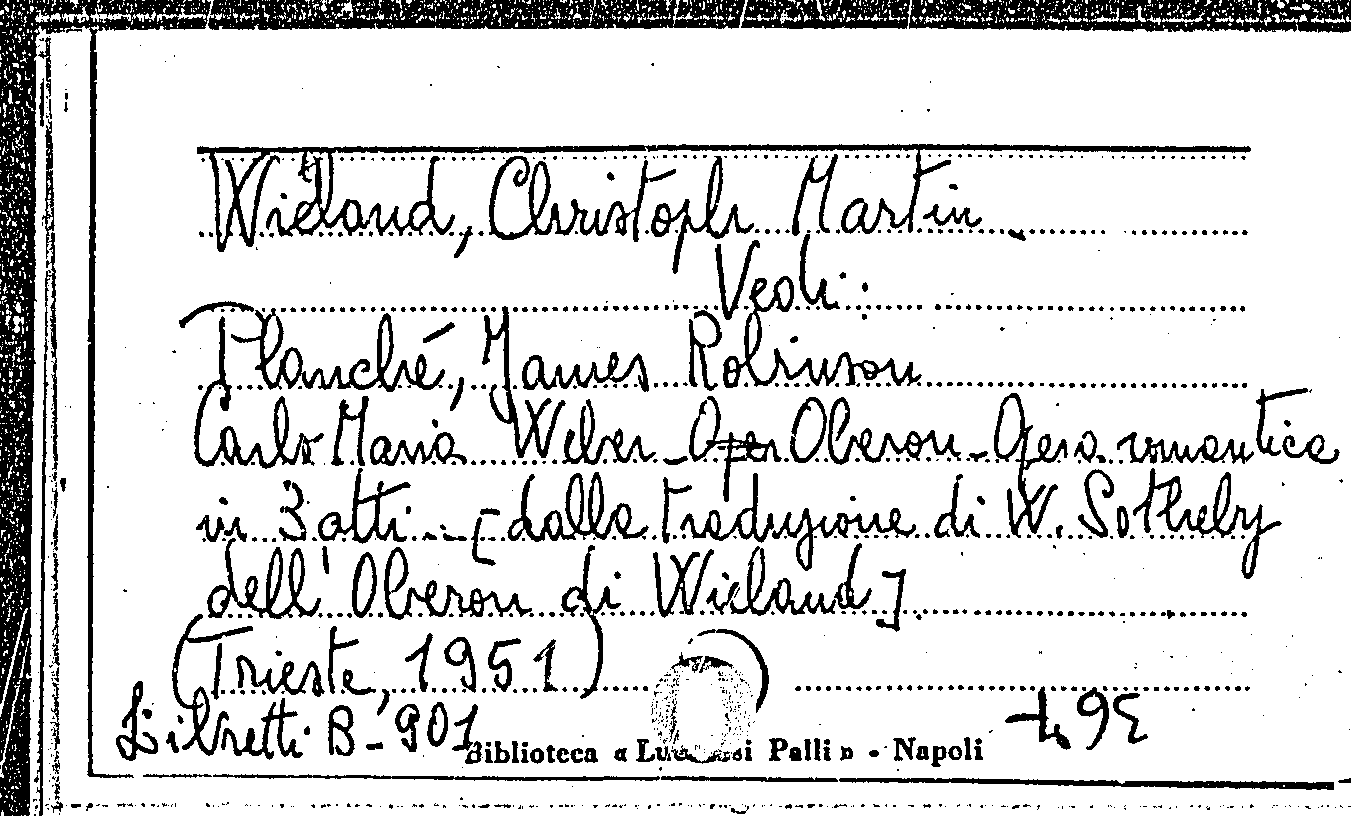 Wieland, Christoph Martin.
Vedi:
Planché, James Robinson
Carlo Maria Weber - Oper Oberon - Opera romantica
in 3 atti... - [dalla traduzione di W. Sotheby
dell'Oberon di Wieland].
(Trieste, 1951)
Libretti B-901
Biblioteca « Lucchesi Palli » - Napoli